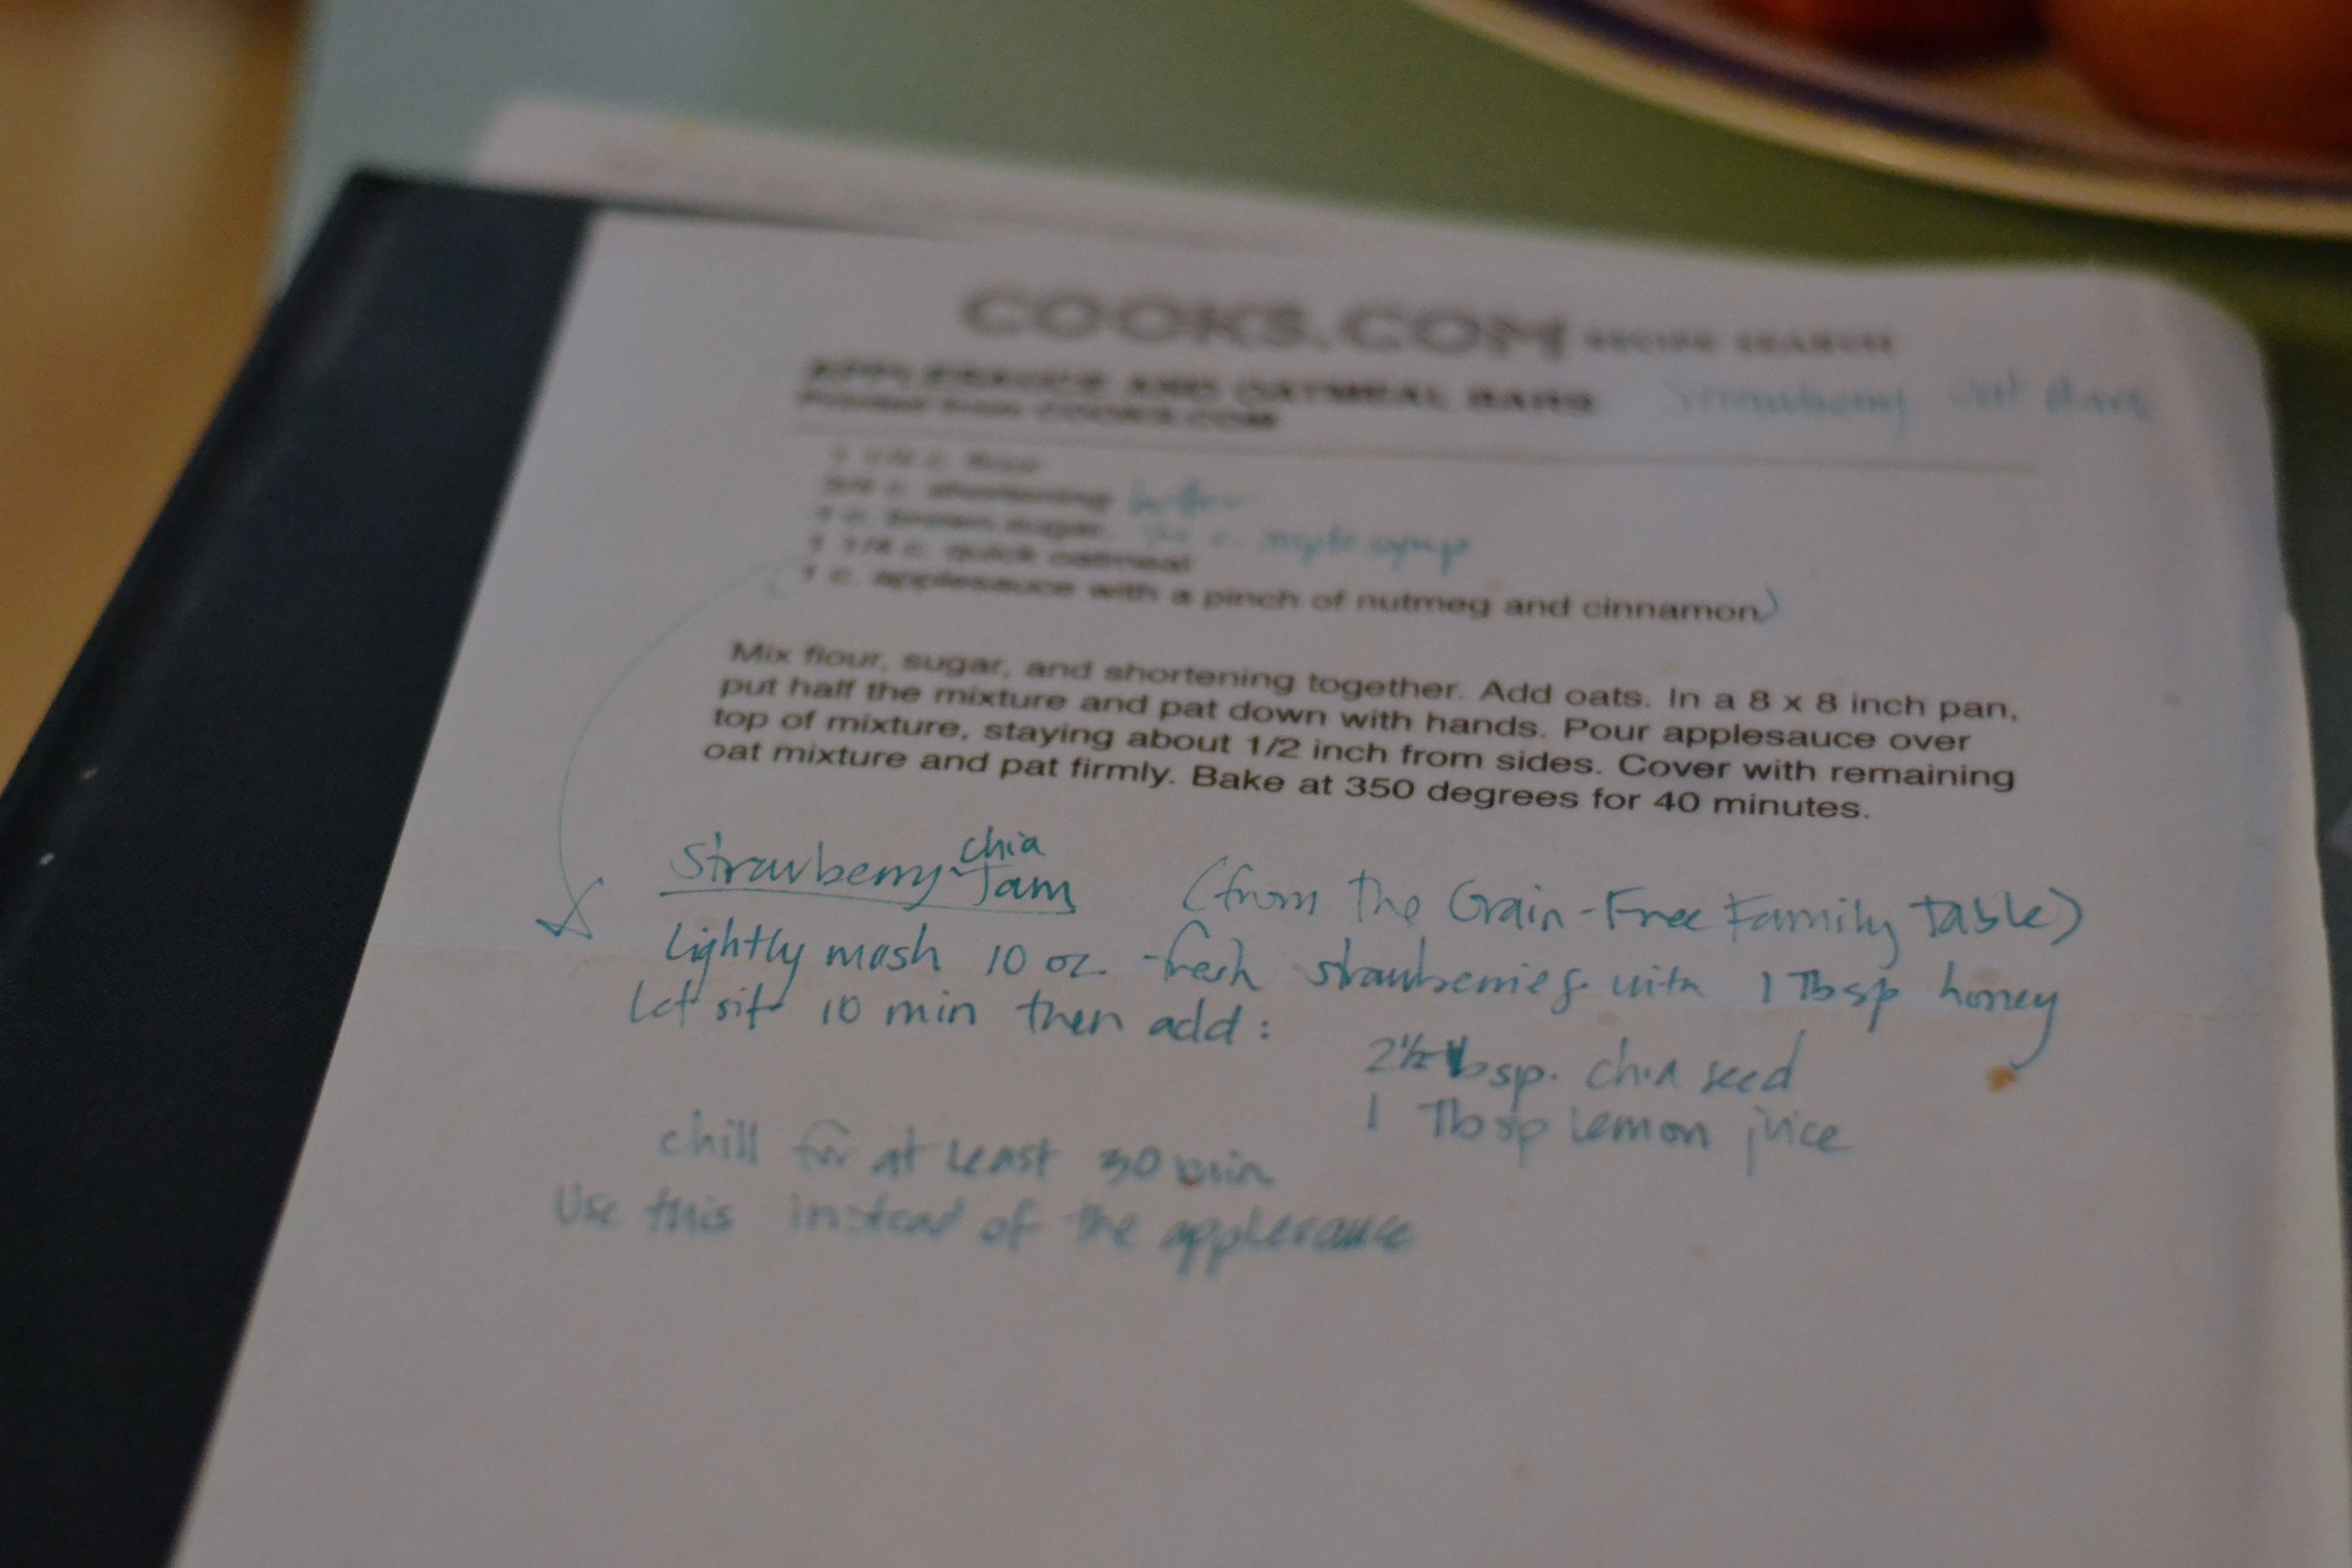 COOKS.COM RECIPE SEARCH
APPLESAUCE AND OATMEAL BARS Strawberry oat
Printed from COOKS.COM
c. flour
c. shortening butter
1 c. brown sugar c. maple syrup
1 1/4 c. quick oatmeal
(1 c. applesauce with a pinch of nutmeg and cinnamon)
Mix flour, sugar, and shortening together. Add oats. In a 8 x 8 inch pan,
put half the mixture and pat down with hands. Pour applesauce over
top of mixture, staying about 1/2 inch from sides. Cover with remaining
oat mixture and pat firmly. Bake at 350 degrees for 40 minutes.
Strawberry chia Jam (from The Grain-Free Family Table)
Lightly mash 10 oz. fresh strawberries with 1 Tbsp honey
Let sit 10 min then add:
2 1/2 tbsp. chia seed
1 Tbsp lemon juice
chill for at least 30 min
Use this instead of the applesauce